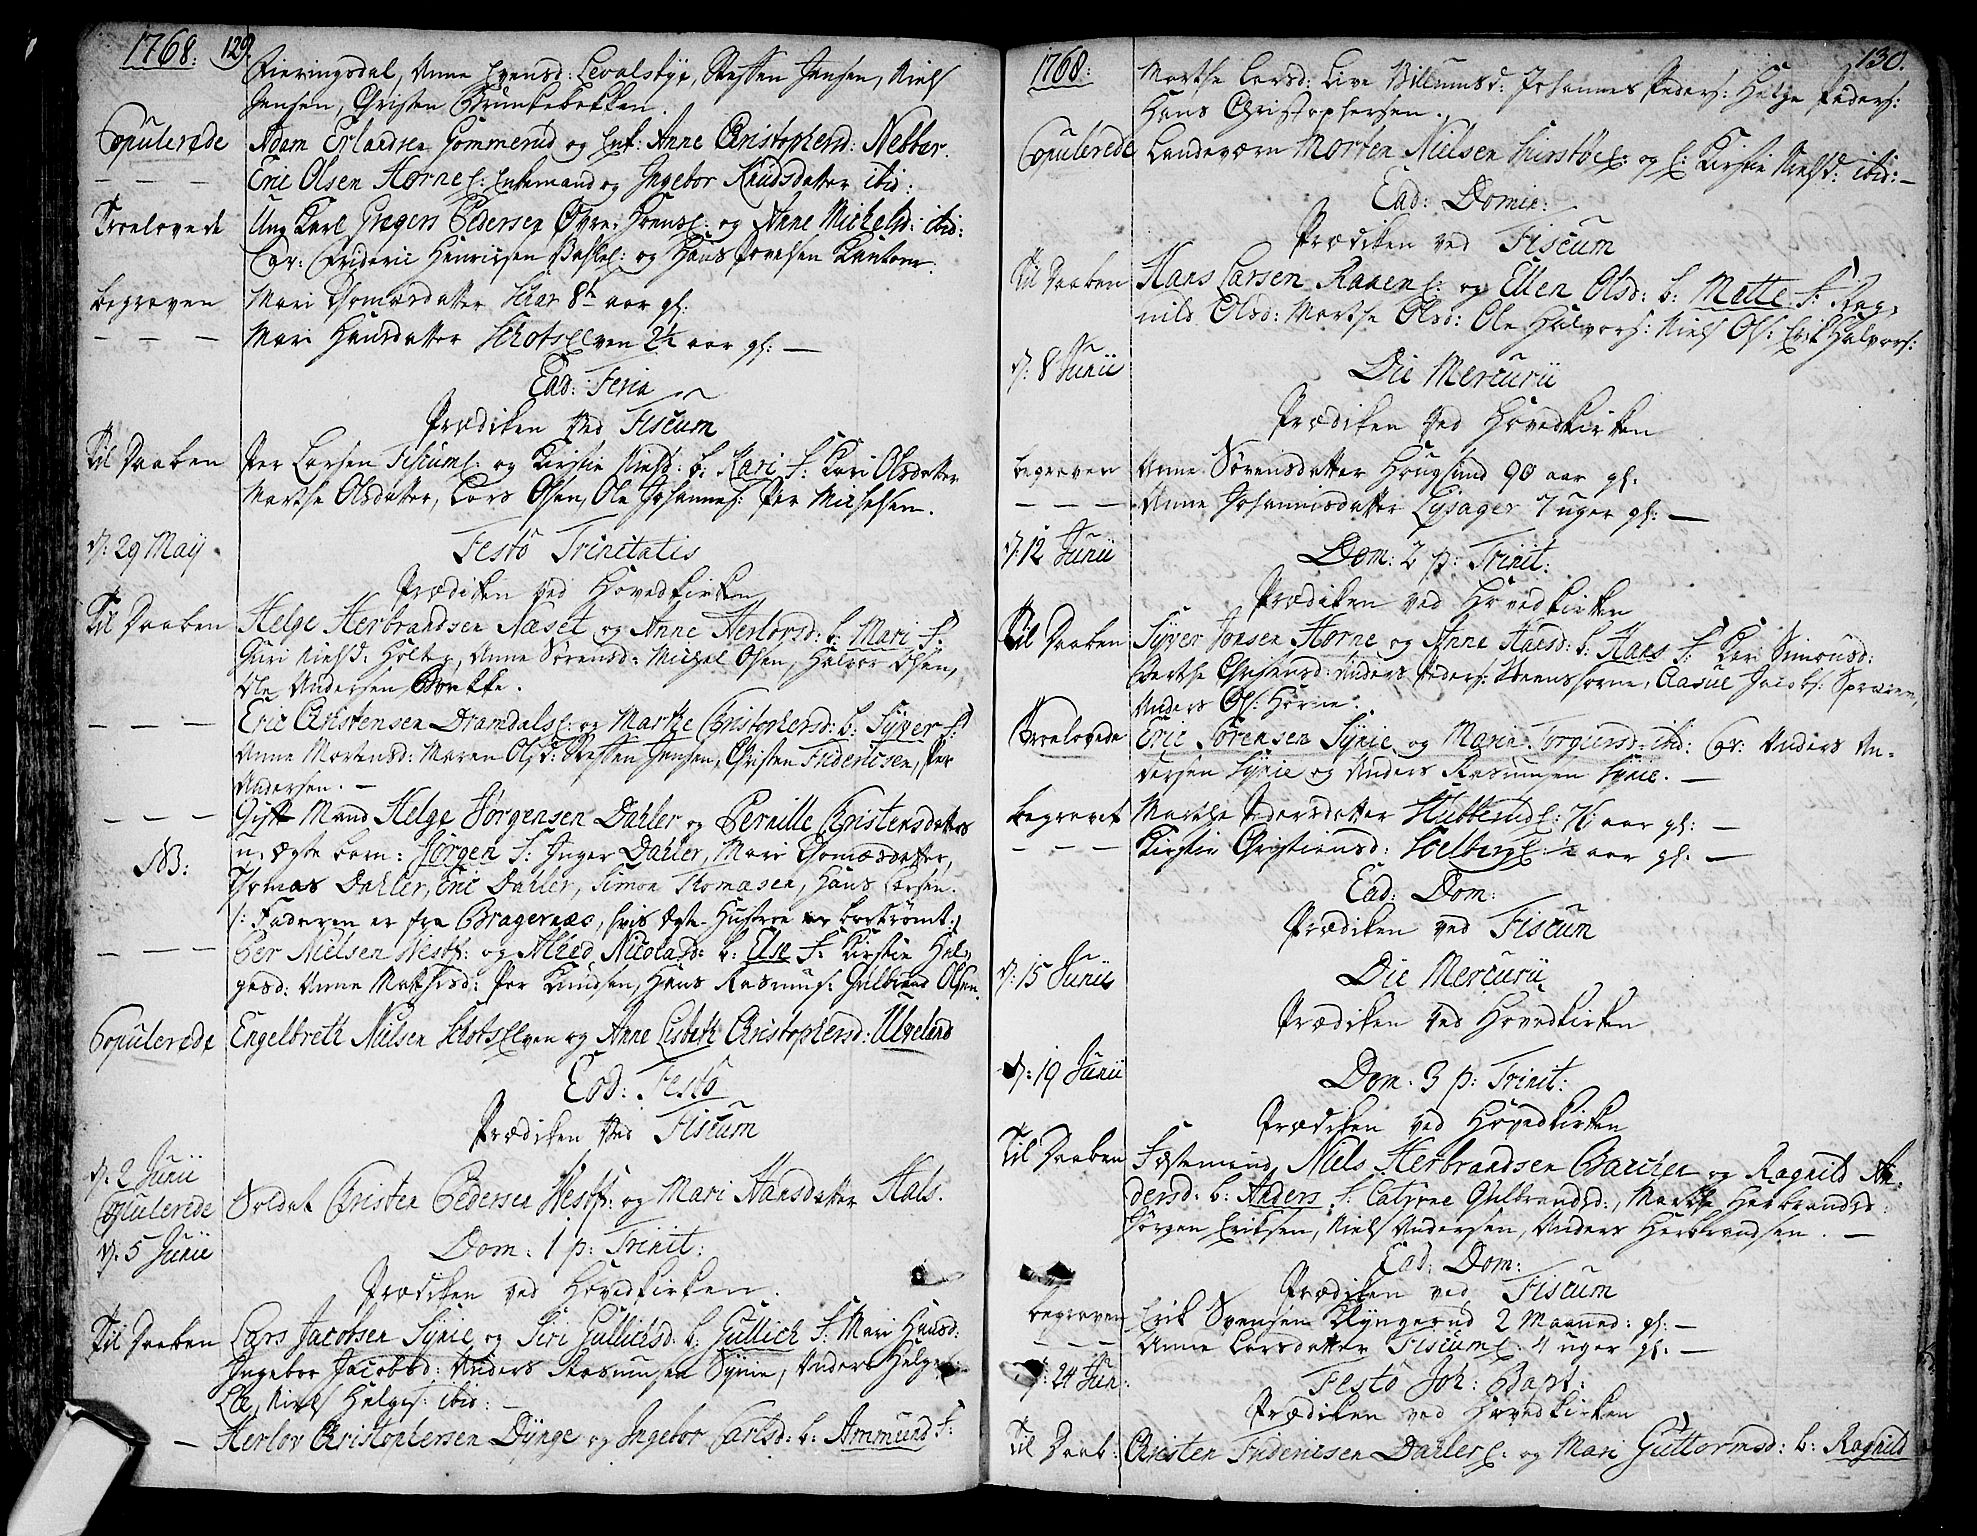 1768. 129.
Fieringsdal, Anne Evensd: Levalsbye, Steffen Jensen, Niels
Jensen, Christen Brunkebakken.
Copulerede Adam Erlandsen Gommerud og Enk: Anne Christophersd: Nebbar.
— — — Eric Olsen Horne E: Enkemand og Ingebor Knudsdatter ibid:
Troelovede Ung Karl Gregers Pedersen Øvre: E: og Anne Michelsd: ibid:
Cav: Frideric Henricsen E: og Hans
begraven Mari Thomasdatter 8½ aar gl:
— — — Mari Hansdatter SchotsElven 2½ aar gl: —
Ead: Feria
Prædiken ved Fiscum
Til Daaben Per Larsen Fiscum E: og Kirstie Nielsd: b: Kari F: Kari Olsdatter
Marthe Olsdatter, Lars Olsen, Ole Johannes: Per Michelsen.
d: 29 Maij. Festo Trinitatis
Prædiken ved Hovedkirken
Til Daaben Helge Herbrandsen Næset og Anne Herlovsd: b: Mari F:
Guri Nielsd: Holte, Anne Sørensd: Michel Olsen, Halvor Olsen,
Ole Andersen Bække.
— — — Eric Christensen Dramdals E: og Marthe Christophersd: b: Syver F:
Anne Mortensd: Maren Olsd: Steffen Jensen, Christen Fridericsen, Per
Andersen. —
— — — Gift Mand Helge Jørgensen Dahler og Pernille Christensdatters
NB: u-ægte barn: Jørgen F: Inger Dahler, Mari Thomasdatter,
Thomas Dahler, Eric Dahler, Simon Thomasen, Hans Larsen.
/: Faderen er fra Bragernæs, hvis Ægte-Hustroe er bortrømt:/
— — — Per Nielsen Westf: og Nicolasd: b: Else F: Kirstie Hel-
gesd: Anne Mathisd: Per Knudsen, Hans Rasmus: Gulbrand Olsen.
Copulerede Engelbreth Nielsen SchotsElven og Anne Lisbeth Christophersd: Ulveland
Eod: Festo
Prædiken ved Fiscum
d: 2 Junii
Copulerede Soldat Christen Pedersen Westf: og Mari Hansdatter Hals.
d: 5 Junii Dom: 1 p: Trinit:
Prædiken ved Hovedkirken.
Til Daaben Lars Jacobsen Synie og Siri Gullichsd: b: Gullich F: Mari Hansd:
Ingebor Jacobsd: Anders Rasmusen Synie, Anders Helges:
Lie, Niels Helges: ibid: —
— Herlov Christophersen Dynge og Ingebor Carlsd: b: Ammund F:
1768: 130.
Marthe Larsd: Live Villumsd: Johannes Peders: Helge Peders:
Hans Christophersen.
Copulerede Landeværn Morten Nielsen E: og E: Kirstie Nielsd: ibid: —
Ead: Domin:
Prædiken ved Fiscum
Til Daaben Hans Larsen Raaen E: og Ellen Olsd: b: Mette F: Rag-
nild Olsd: Marthe Olsd: Ole Halvors: Niels Ols: Erik Halvors:
d: 8 Junii Die Mercurii
Prædiken ved Hovedkirken
begraven Anne Sørensdatter Hougsund 90 aar gl:
— — — Anne Johannisdatter Lysager 7 uger gl: —
d: 12 Junii Dom: 2 p: Trinit:
Prædiken ved Hovedkirken
Til Daaben Syver Jonsen Horne og Anne Hansd: b: Hans F: Kari Simonsd:
Berthe Christensd: Anders Peders: Aasue Jacobs:
Anders Ols: Horne.
Troelovede Eric Sørensen Synie og Marie Torgersd: ibid: Cav: Anders An-
dersen Synie og Anders Rasmusen Synie. —
begravet Marthe Pedersdatter Hubberud E: 71 aar gl: —
— — — Kirstie Christiensd: Solberg E: ½ aar gl: —
Ead: Dom:
Prædiken ved Fiscum
d: 15 Junii Die Mercurii
Prædiken ved Hovedkirken
d: 19 Junii Dom: 3 p: Trinit:
Prædiken ved Hovedkirken
Til Daaben Fæstemand Niels Herbrandsen og Ragnild An-
dersd: b: Anders F: Catrine Gulbrandsd:, Marthe Herbrandsd:
Jørgen Eriksen, Niels Andersen, Anders Herbrandsen. —
Ead: Dom:
Prædiken ved Fiscum
begraven Erik Svensen Klyngerud 2 Maaned: gl: —
— — — Anne Larsdatter Fiscum E: 4 uger gl: —
d: 24 Jun: Festo Joh: Bapt:
Prædiken ved Hovedkirken
Til Daab: Christen Fridericsen Dahler E: og Mari Guttormsd: b: Ragnild